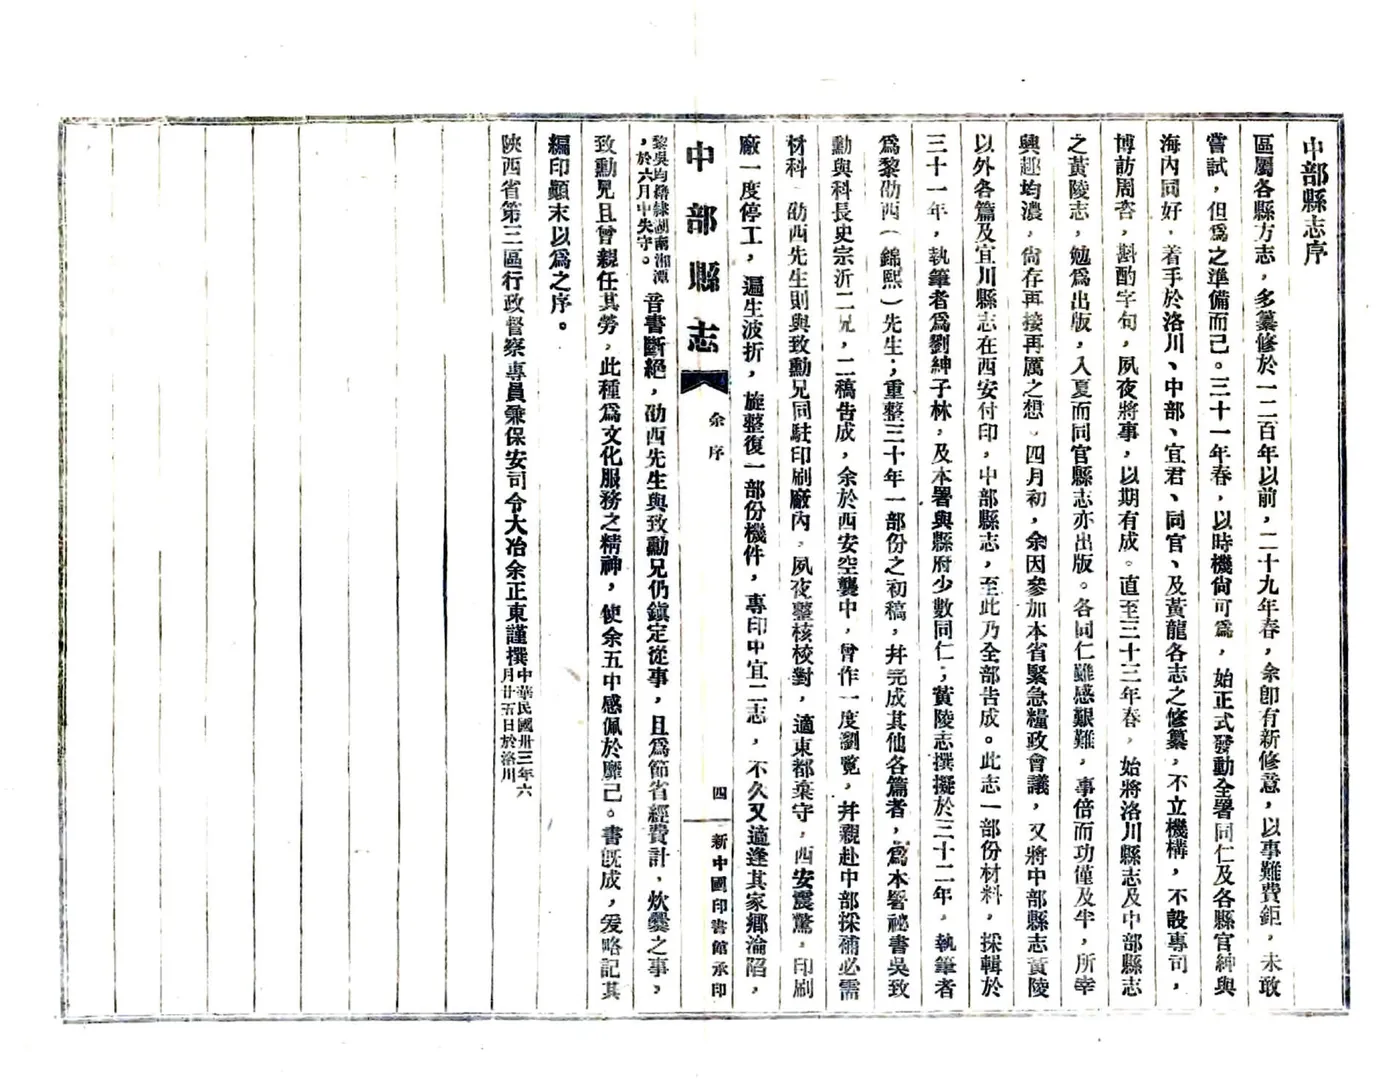 中部縣志序
區屬各縣方志，多纂修於一二百年以前，二十九年春，余卽有新修意，以事難費鉅，未敢
嘗試，但爲之準備而已。三十一年春，以時機尙可爲，始正式發動全署同仁及各縣官紳與
海內同好，着手於洛川、中部、宜君、同官、及黃龍各志之修纂，不立機構，不設專司，
博訪周咨，斟酌字句，夙夜將事，以期有成。直至三十三年春，始將洛川縣志及中部縣志
之黃陵志，勉爲出版，入夏而同官縣志亦出版。各同仁雖感艱難，事倍而功僅及半，所幸
興趣均濃，尙存再接再厲之想。四月初，余因參加本省緊急糧政會議，又將中部縣志黃陵
以外各篇及宜川縣志在西安付印，中部縣志，至此乃全部告成。此志一部份材料，採輯於
三十一年，執筆者爲劉紳子林，及本署與縣府少數同仁；黃陵志撰擬於三十二年，執筆者
爲黎劭西（錦熙）先生；重整三十年一部份之初稿，幷完成其他各篇者，爲本署祕書吳致
勳與科長史宗沂二兄，二稿告成，余於西安空襲中，曾作一度瀏覽，幷親赴中部採補必需
材料　劭西先生則與致勳兄同駐印刷廠內，夙夜整核校對，適東都棄守，西安震驚，印刷
廠一度停工，遍生波折，旋整復一部份機件，專印中宜二志，不久又適逢其家鄉淪陷，
中部縣志
余序
四
新中國印書館承印
黎吳均籍隸湖南湘潭
，於六月中失守。
音書斷絕，劭西先生與致勳兄仍鎭定從事，且爲節省經費計，炊爨之事，
致勳兄且曾親任其勞，此種爲文化服務之精神，使余五中感佩於靡已。書旣成，爰略記其
編印顚末以爲之序。
陝西省第三區行政督察專員兼保安司令大冶余正東謹撰
中華民國卅三年六
月廿五日於洛川